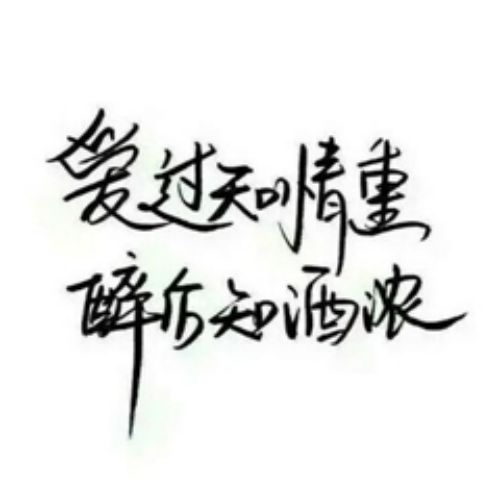 爱过知情重
醉后知酒浓